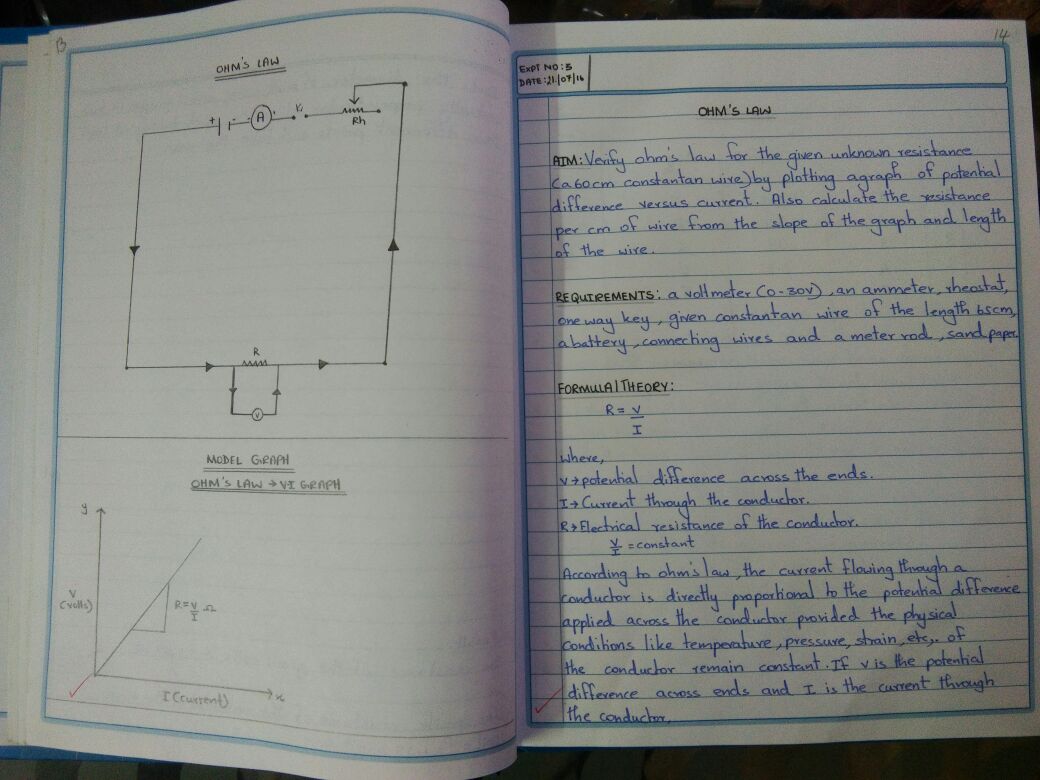 13
OHM'S LAW
+ - - A + K₁
Rh
R
V
MODEL GRAPH
OHM'S LAW → VI GRAPH
y
V
(volts)
R=V/I Ω
I (current)
x
14
EXPT NO: 3
DATE: 21/07/16
OHM'S LAW
AIM: Verify ohm's law for the given unknown resistance
(a 60cm constantan wire) by plotting a graph of potential
difference versus current. Also calculate the resistance
per cm of wire from the slope of the graph and length
of the wire.
REQUIREMENTS: a voltmeter (0-30V), an ammeter, rheostat,
one way key, given constantan wire of the length 65cm,
a battery, connecting wires and a meter rod, sand paper.
FORMULA/THEORY:
R = V/I
Where,
V → potential difference across the ends.
I → Current through the conductor.
R → Electrical resistance of the conductor.
V/I = constant
According to ohm's law, the current flowing through a
conductor is directly proportional to the potential difference
applied across the conductor provided the physical
conditions like temperature, pressure, strain, etc,. of
the conductor remain constant. If V is the potential
difference across ends and I is the current through
the conductor,